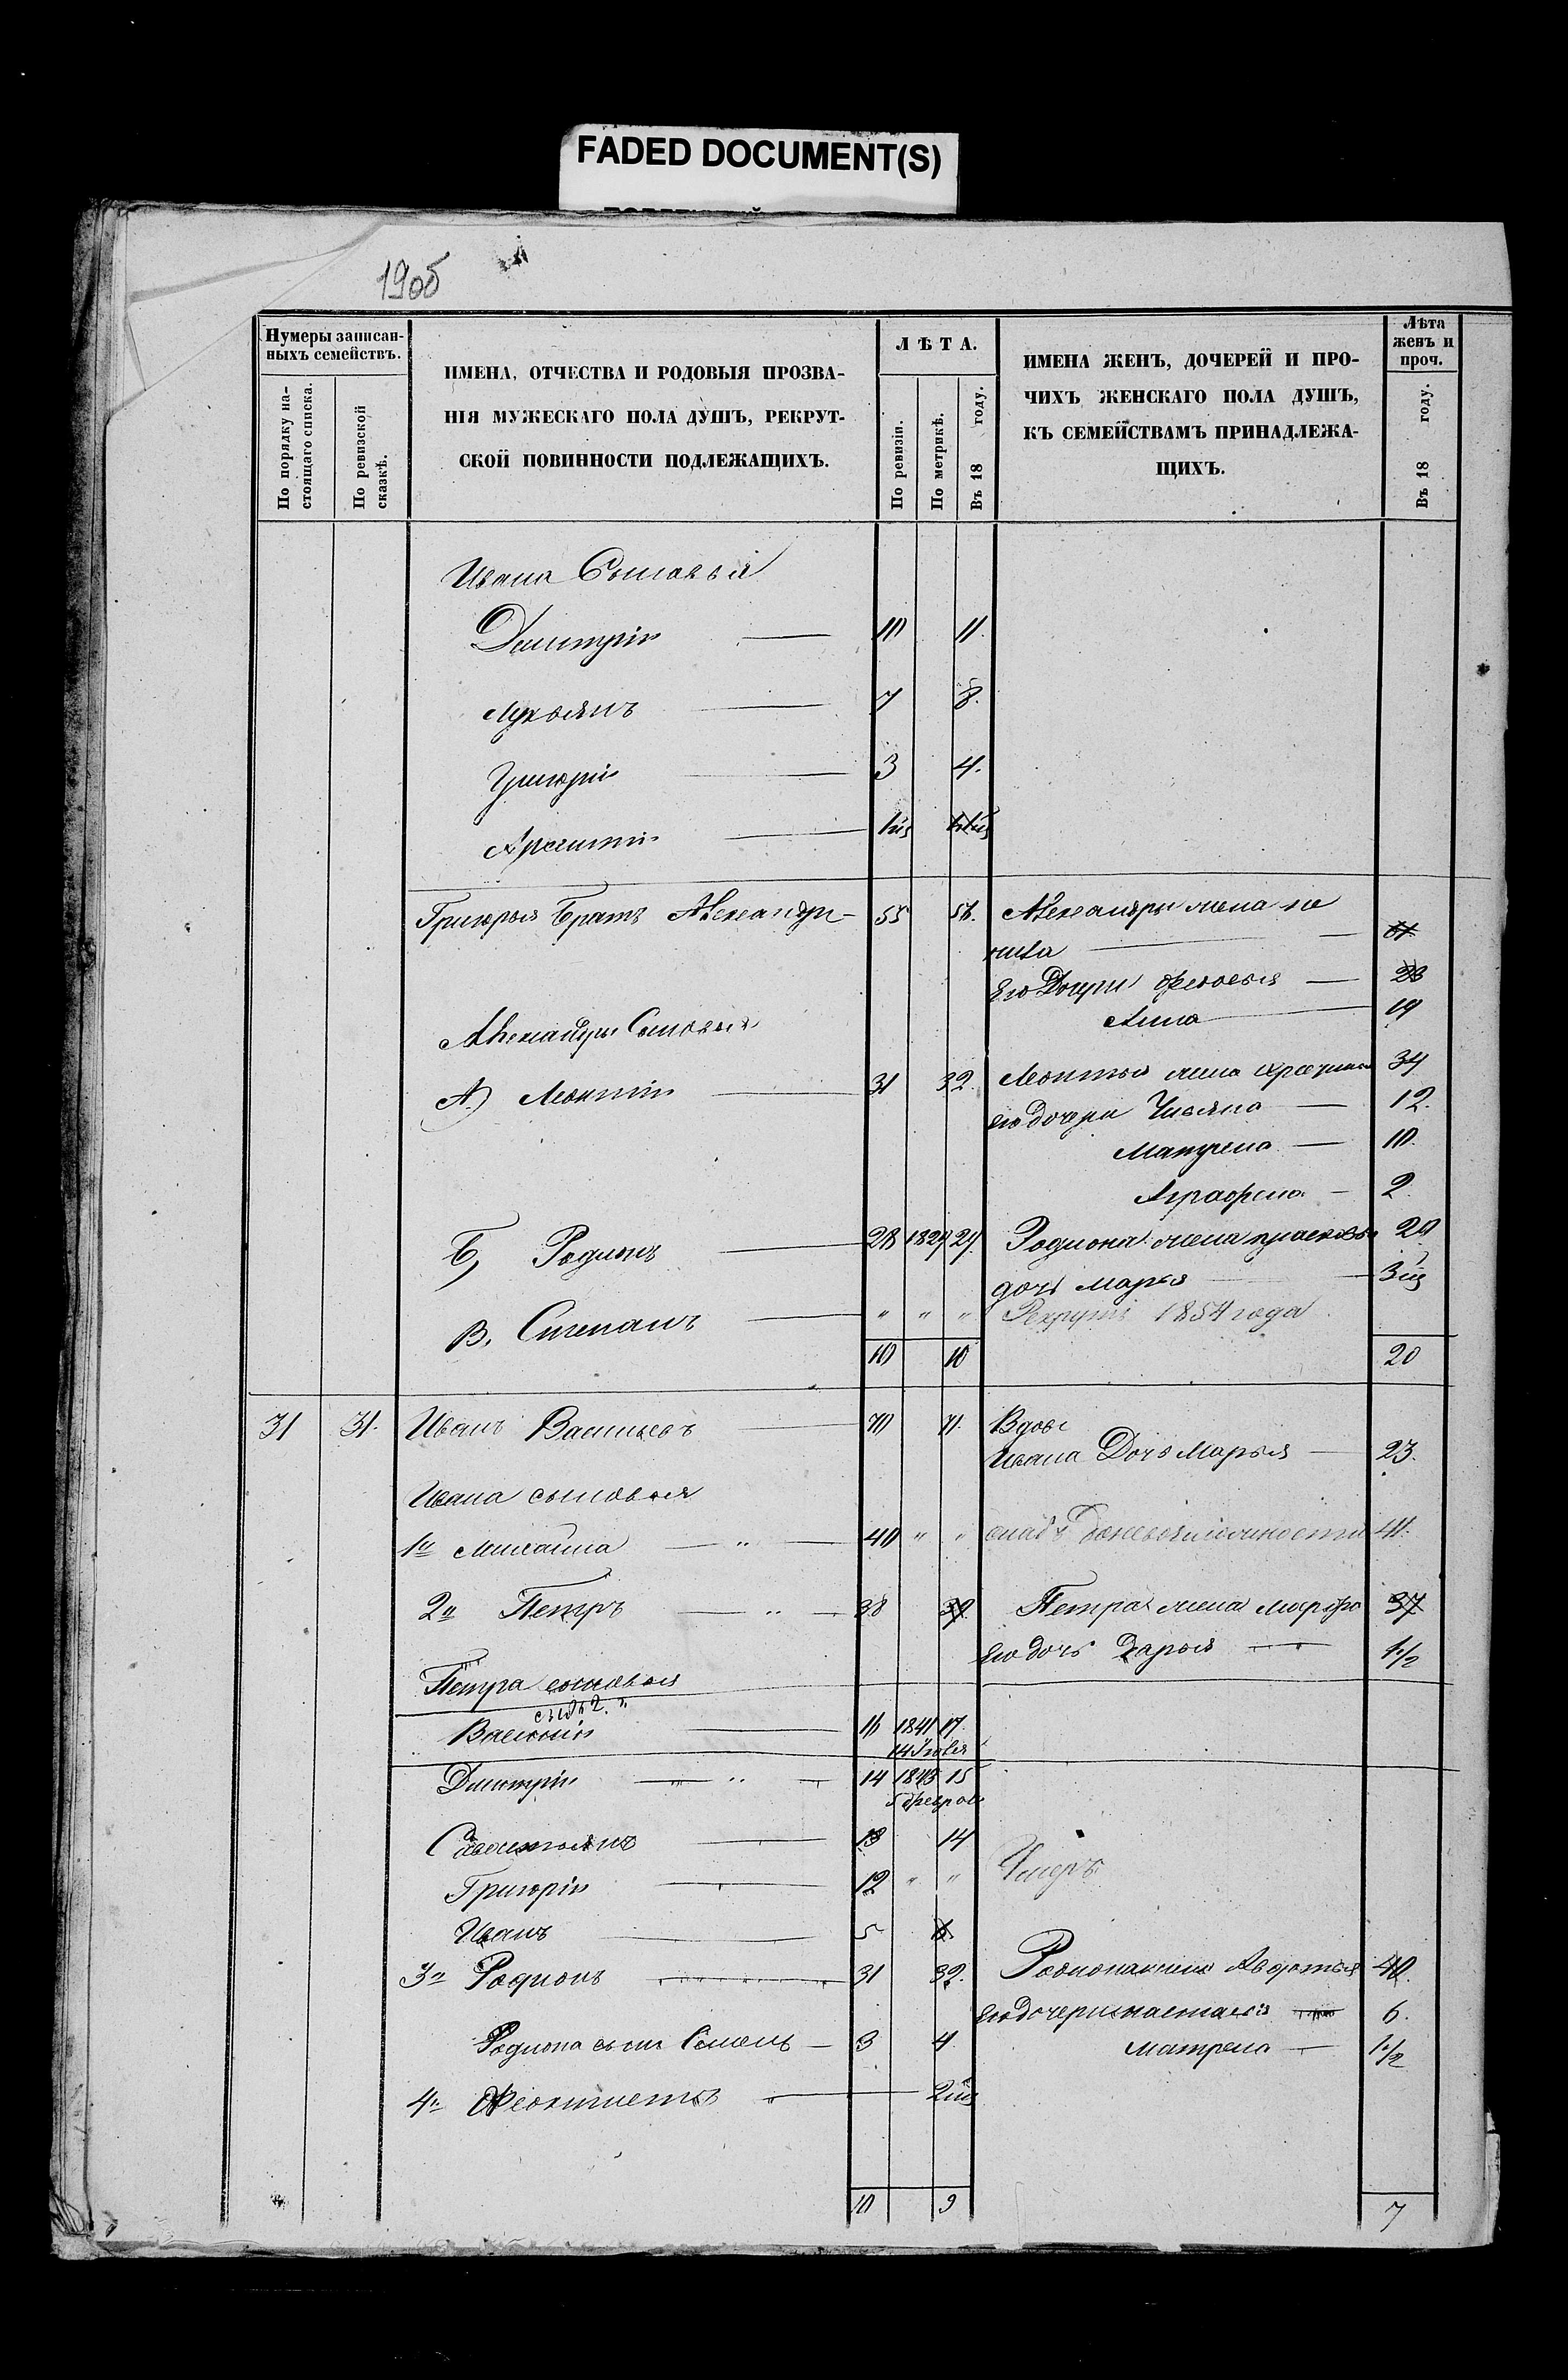 FADED DOCUMENT(S)
190б
Нумеры записан-
ныхъ семействъ.
По порядку на-
стоящаго списка.
По ревизской
сказкѣ.
ИМЕНА, ОТЧЕСТВА И РОДОВЫЯ ПРОЗВА-
НІЯ МУЖЕСКАГО ПОЛА ДУШЪ, РЕКРУТ-
СКОЙ ПОВИННОСТИ ПОДЛЕЖАЩИХЪ.
ЛѢТА.
По ревизіи.
По метрикѣ.
Въ 18 году.
ИМЕНА ЖЕНЪ, ДОЧЕРЕЙ И ПРО-
ЧИХЪ ЖЕНСКАГО ПОЛА ДУШЪ,
КЪ СЕМЕЙСТВАМЪ ПРИНАДЛЕЖА-
ЩИХЪ.
Лѣта
женъ и
проч.
Въ 18 году.
Ивана Сыновья
Дмитрій — 10 11.
Лукьянъ — 7 8.
Григорій — 3 4.
Арсентій —
Григорья Братъ Александръ — 55 56. Александры жена
Его Дочери —
Анна — 19
Александры Сыновья
А) Леонтій — 31 32. Леонтья жена 34
его дочери Ульяна — 12.
Матрена — 10.
Аграфена — 2.
Б, Родіонъ — 28 1829 29. Родиона жена прасковья 29
дочь Марья —
В, Степанъ — " " " Рекрутъ 1854 года
10 10 20
31 31. Иванъ Васильевъ — 70 71. Вдовъ
Ивана Дочь Марья — 23.
Ивана сыновья
1й Михаила — " — 40 " " 41.
2й Петръ — " — 38 39. Петра жена марфа 37
его дочь Дарья — 1/2
Петра сыновья
Василій — 16 1841 17.
14
Дмитрій — " — 14 1843 15
5 феврал
Савостьянъ — 13 14
Григорій — 12 " " Умеръ
Иванъ — 5 6
3й Родіонъ 31 32. Авдотья 40.
его дочери настасья — 6.
Родиона сынъ Семенъ — 3 4 матрена — 1/2
4й Феоктистъ —
10 9 7